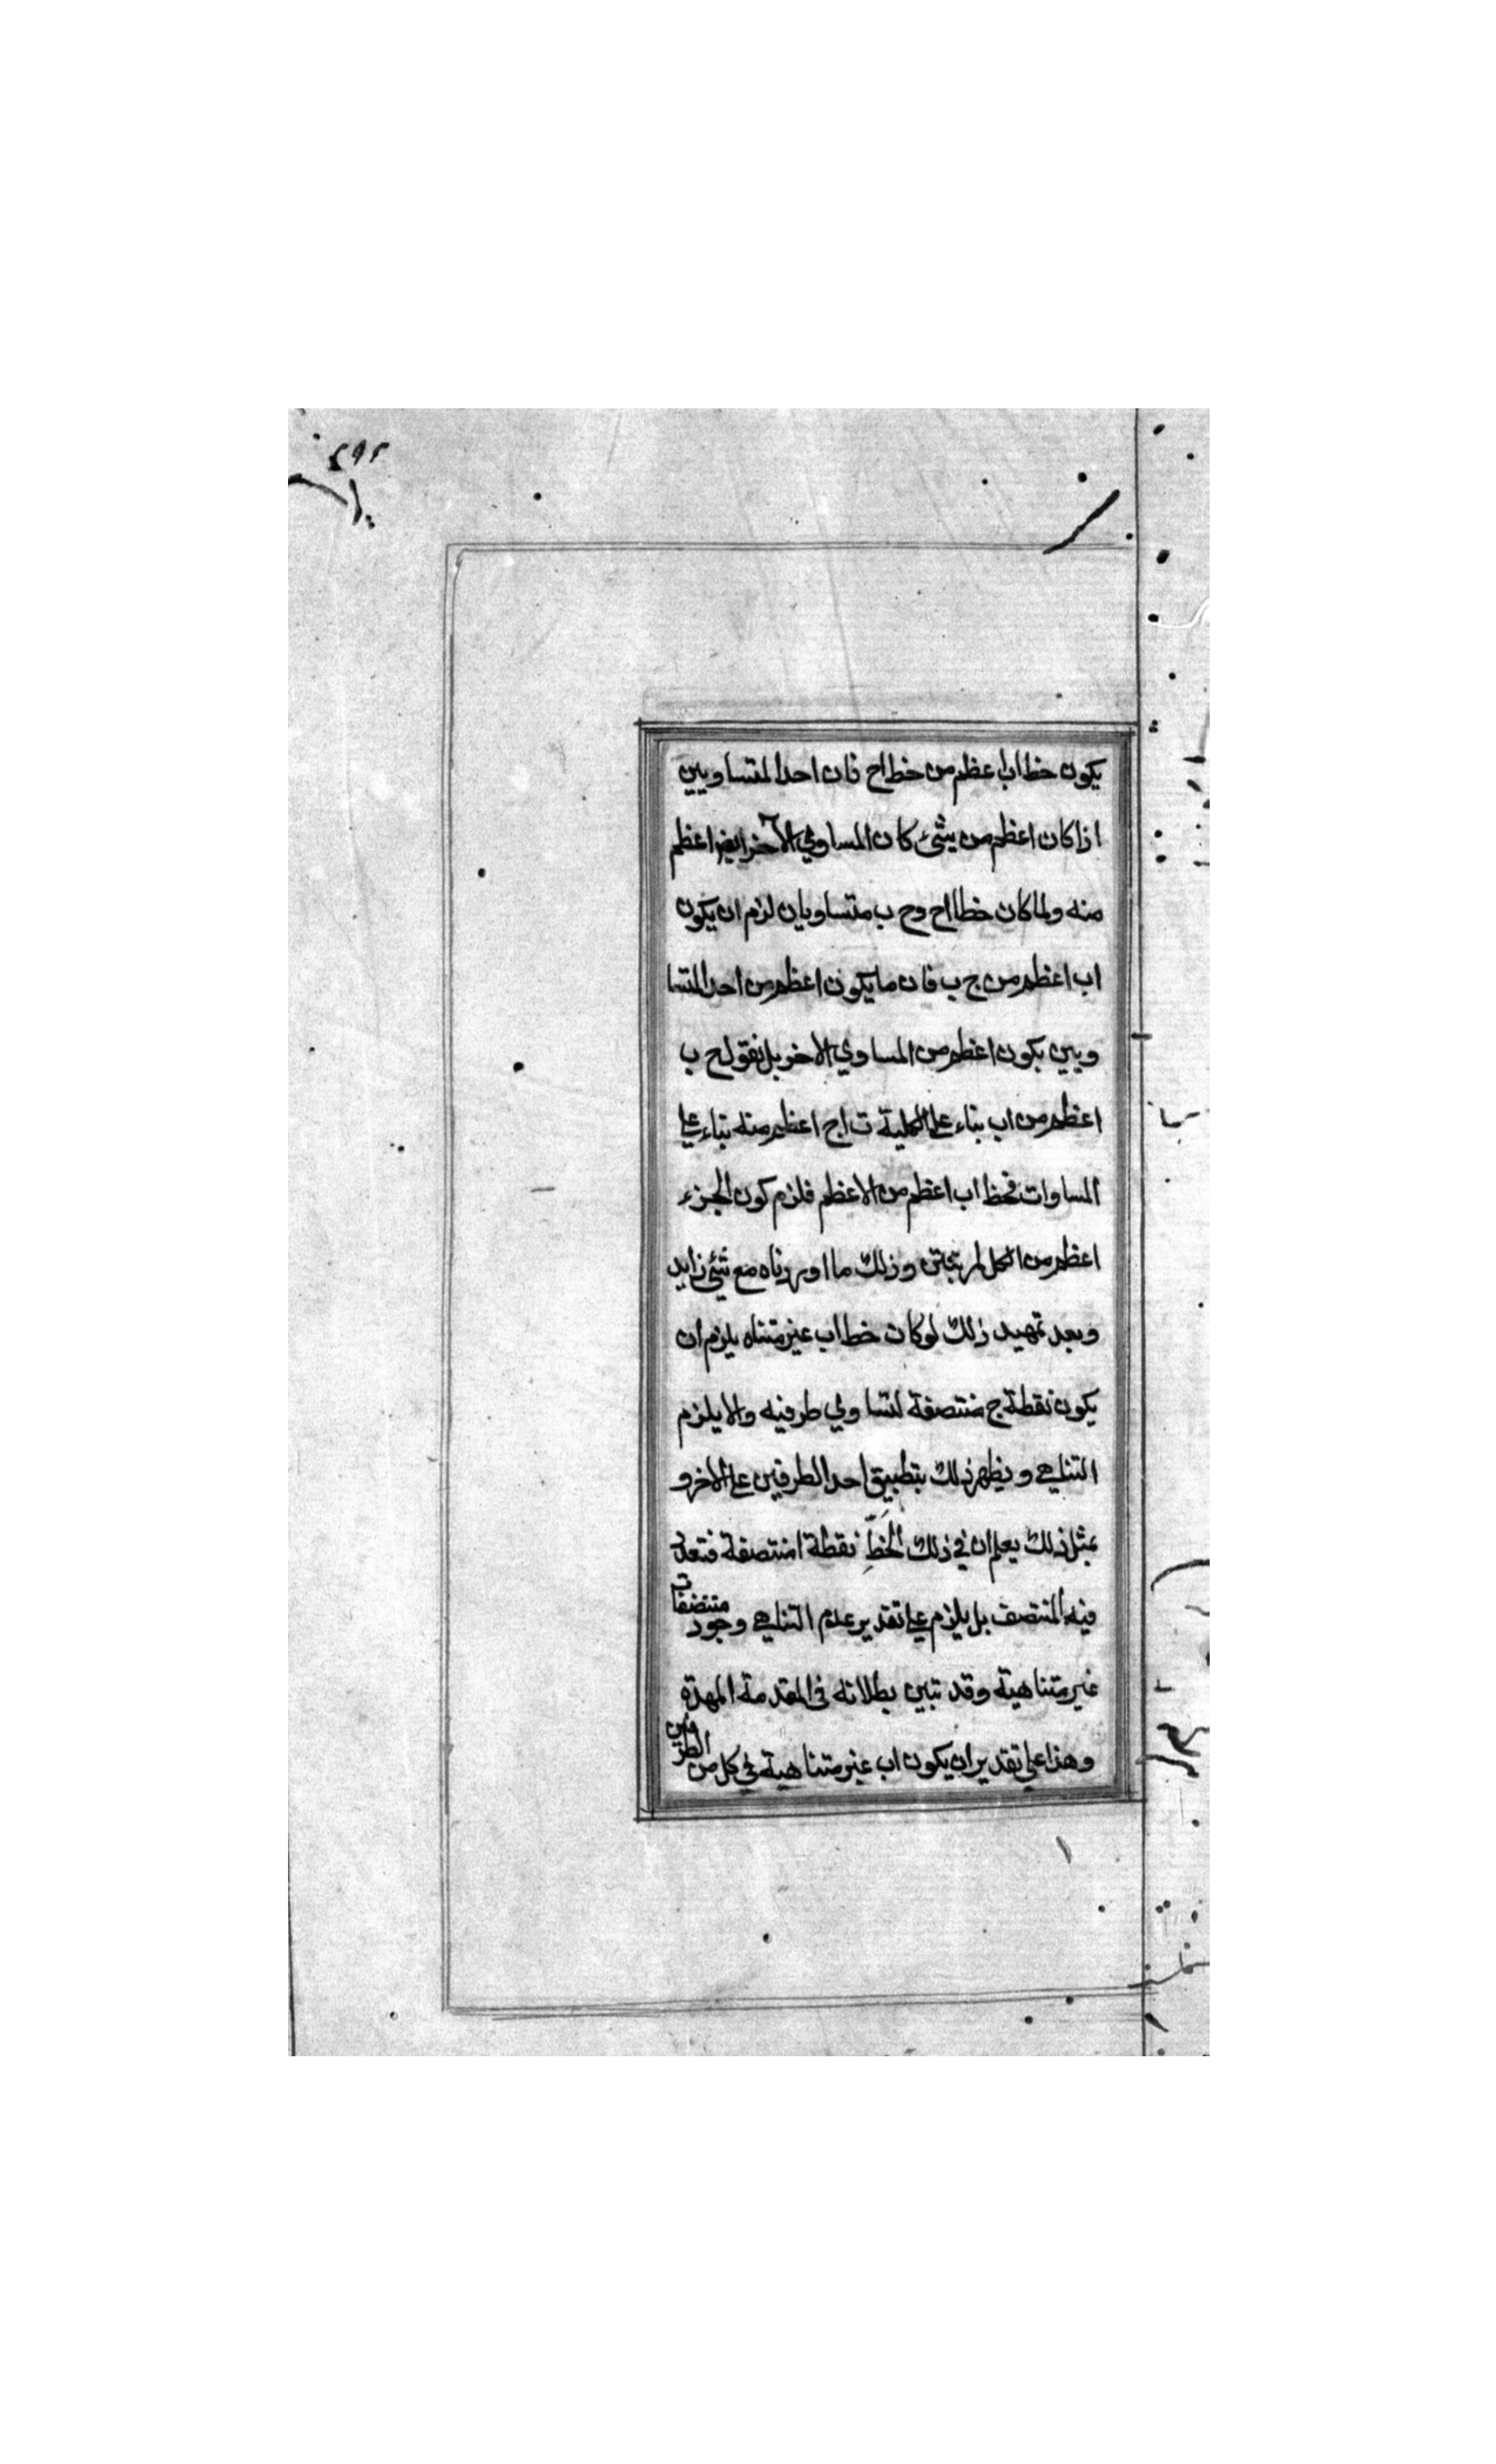 يكون خط اب اعظم من خط اح فان احد المتساويين
اذا كان اعظم من شئ كان المساوي الاخر ايض اعظم
منه ولما كان خطا اح وح ب متساويان لزم ان يكون
اب اعظم من ج ب فان ما يكون اعظم من احد المتسا
ويين يكون اعظم من المساوي الاخر بل نقول ح ب
اعظم من اب بناء على الكلية ت اج اعظم منه بناء على
المساوات فخط اب اعظم من الاعظم فلزم كون الجزء
اعظم من الكل لمرتبتين وذلك ما اوردناه مع شئ زايد
وبعد تمهيد ذلك لو كان خط اب غير متناه يلزم ان
يكون نقطة ج منتصفة لتساوي طرفيه والا يلزم
التناهي ويظهر ذلك بتطبيق احد الطرفين على الاخر و
بمثل ذلك يعلم ان في ذلك الخط نقطة ا منتصفة فتعدد
فيه المنتصف بل يلزم على تقدير عدم التناهي وجود منتصفات
غير متناهية وقد تبين بطلانه في المقدمة الممهدة
وهذا على تقدير ان يكون اب غير متناهية في كل من الطرفين